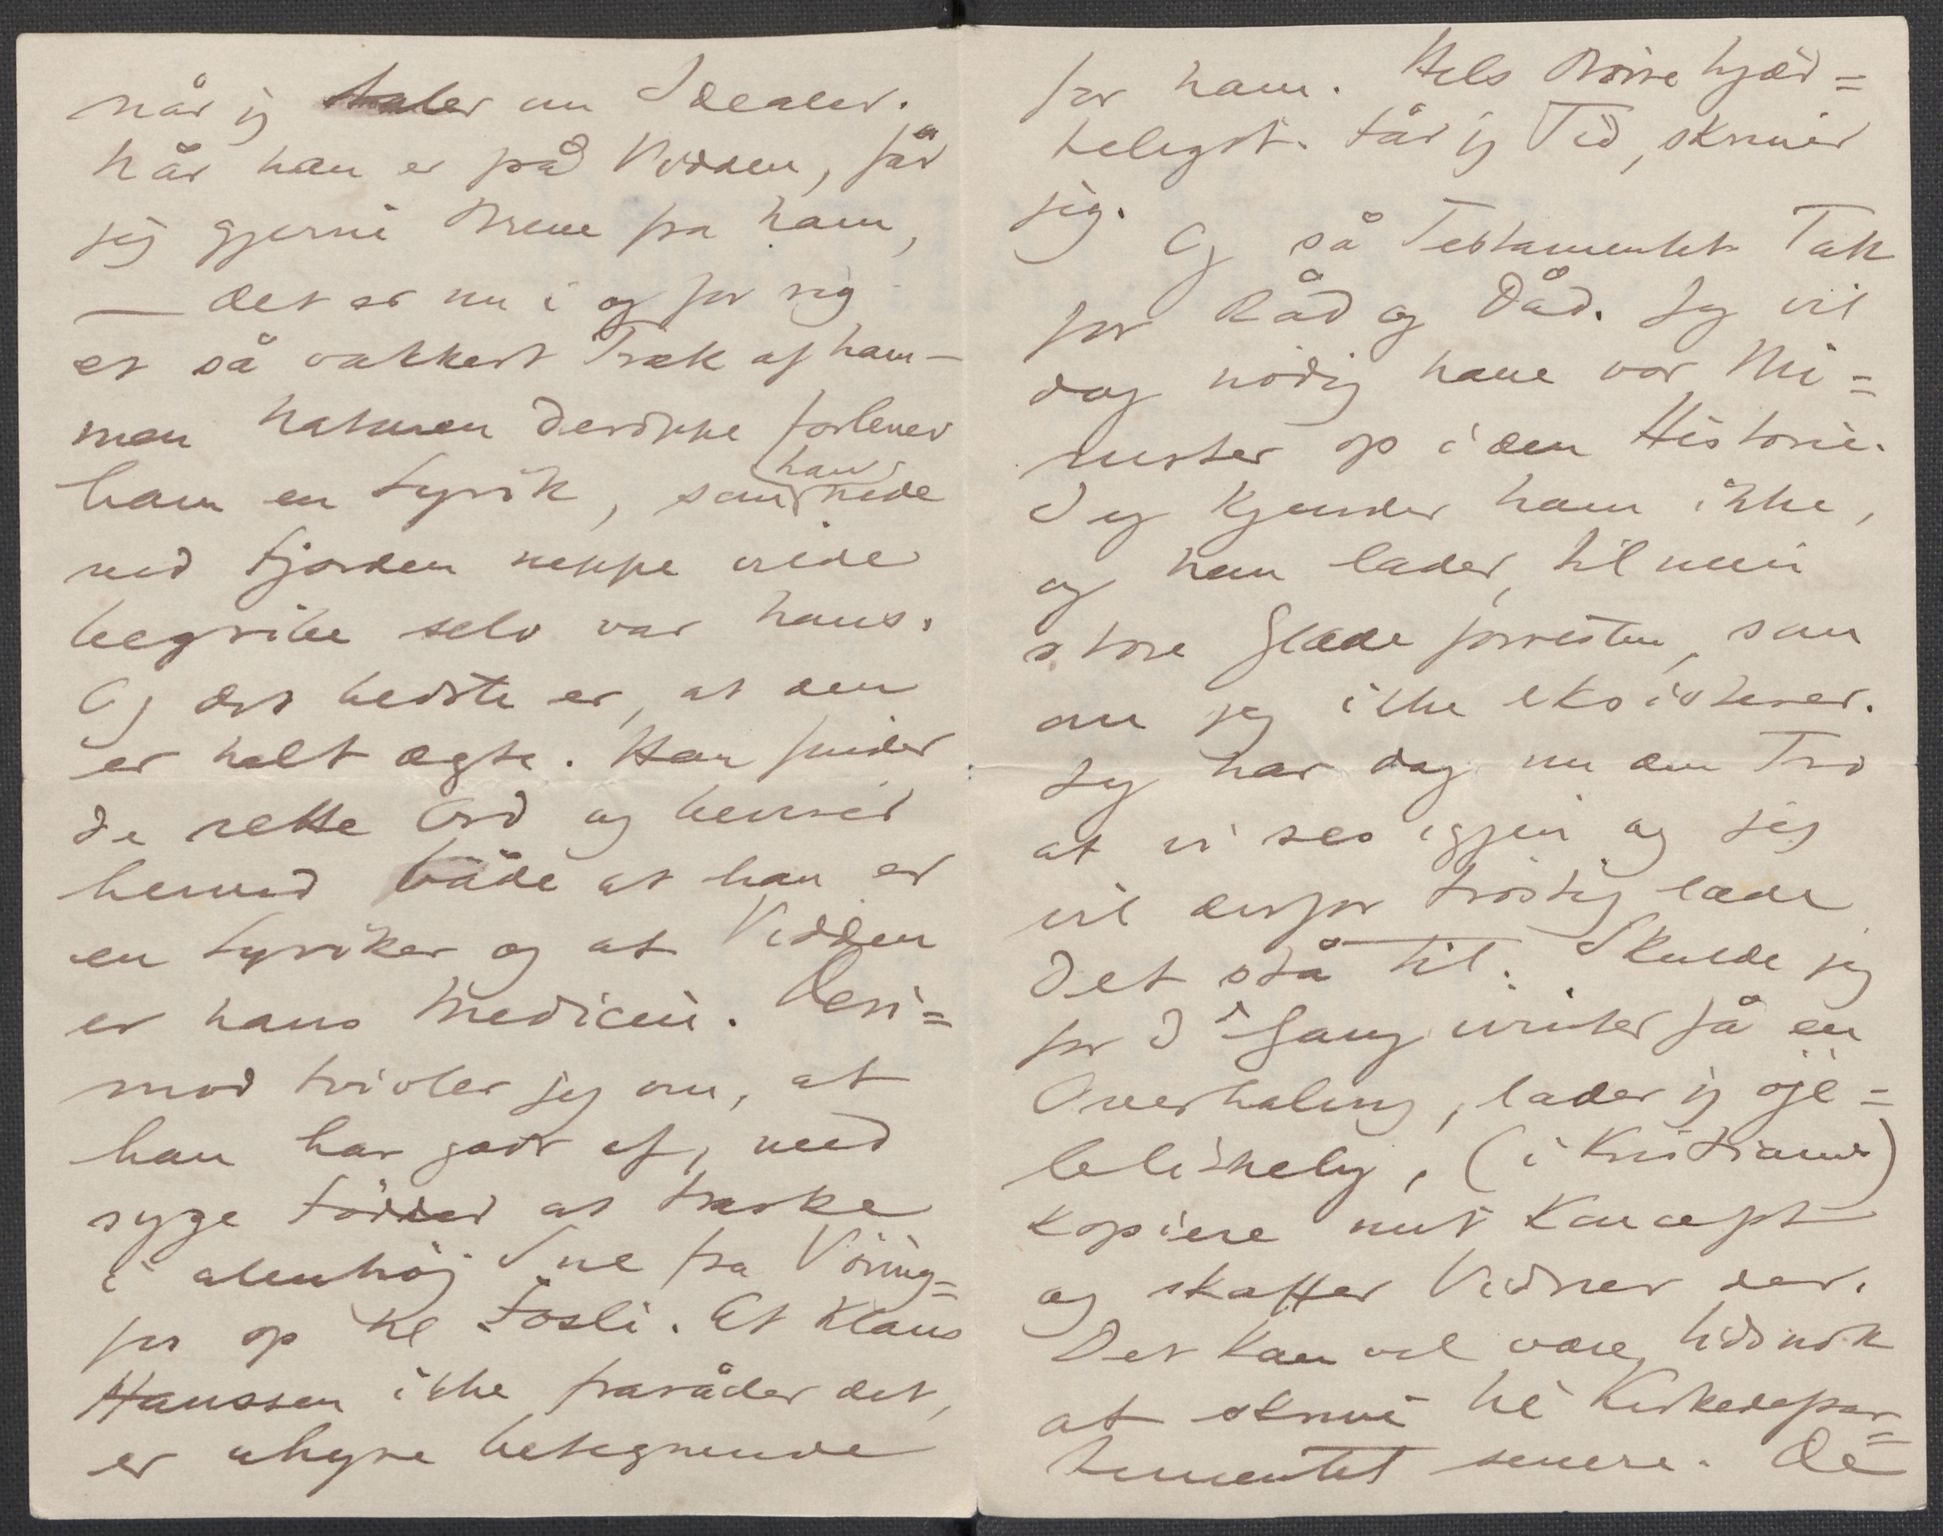 når jeg taler om Idealer.
Når han er på Vidden, får
jeg gjerne Breve fra ham,
— det er nu i og for sig
et så vakkert Træk af ham —
men Naturen deroppe forlener
ham en Lyrik, som han nede
ved Fjorden neppe vilde
begribe selv var hans.
Og det bedste er, at den
er helt ægte. Han finder
de rette Ord og beviser
herved både at han er
en Lyriker og at Vidden
er hans Medicin. Deri=
mod tvivler jeg om, at
han har godt af, med
syge Fødder at traske
i alenhøj Sne fra Vöring=
fos op til Fosli. At Klaus
Hanssen ikke fraråder det,
er uhyre betegnende
for ham. Hils Börre hjær=
teligst. Får jeg Tid, skriver
jeg.
Og så Testamentet. Tak
for Råd og Dåd. Jeg vil
dog nödig have vor Mi=
nister op i den Historie.
Jeg kjender ham ikke,
og han lader, til min
store Glæde forresten, som
om jeg ikke eksisterer.
Jeg har dog nu den Tro
at vi ses igjen og jeg
vil derfor tröstig lade
det stå til. Skulde jeg
for Gang i Vinter få en
Overhaling, lader jeg öje=
blikkelig, (i Kristiania)
kopiere mit Koncept
og skaffer Vidner der.
Det kan vel være tidsnok
at skrive til Kirkedepar=
tementet senere. De